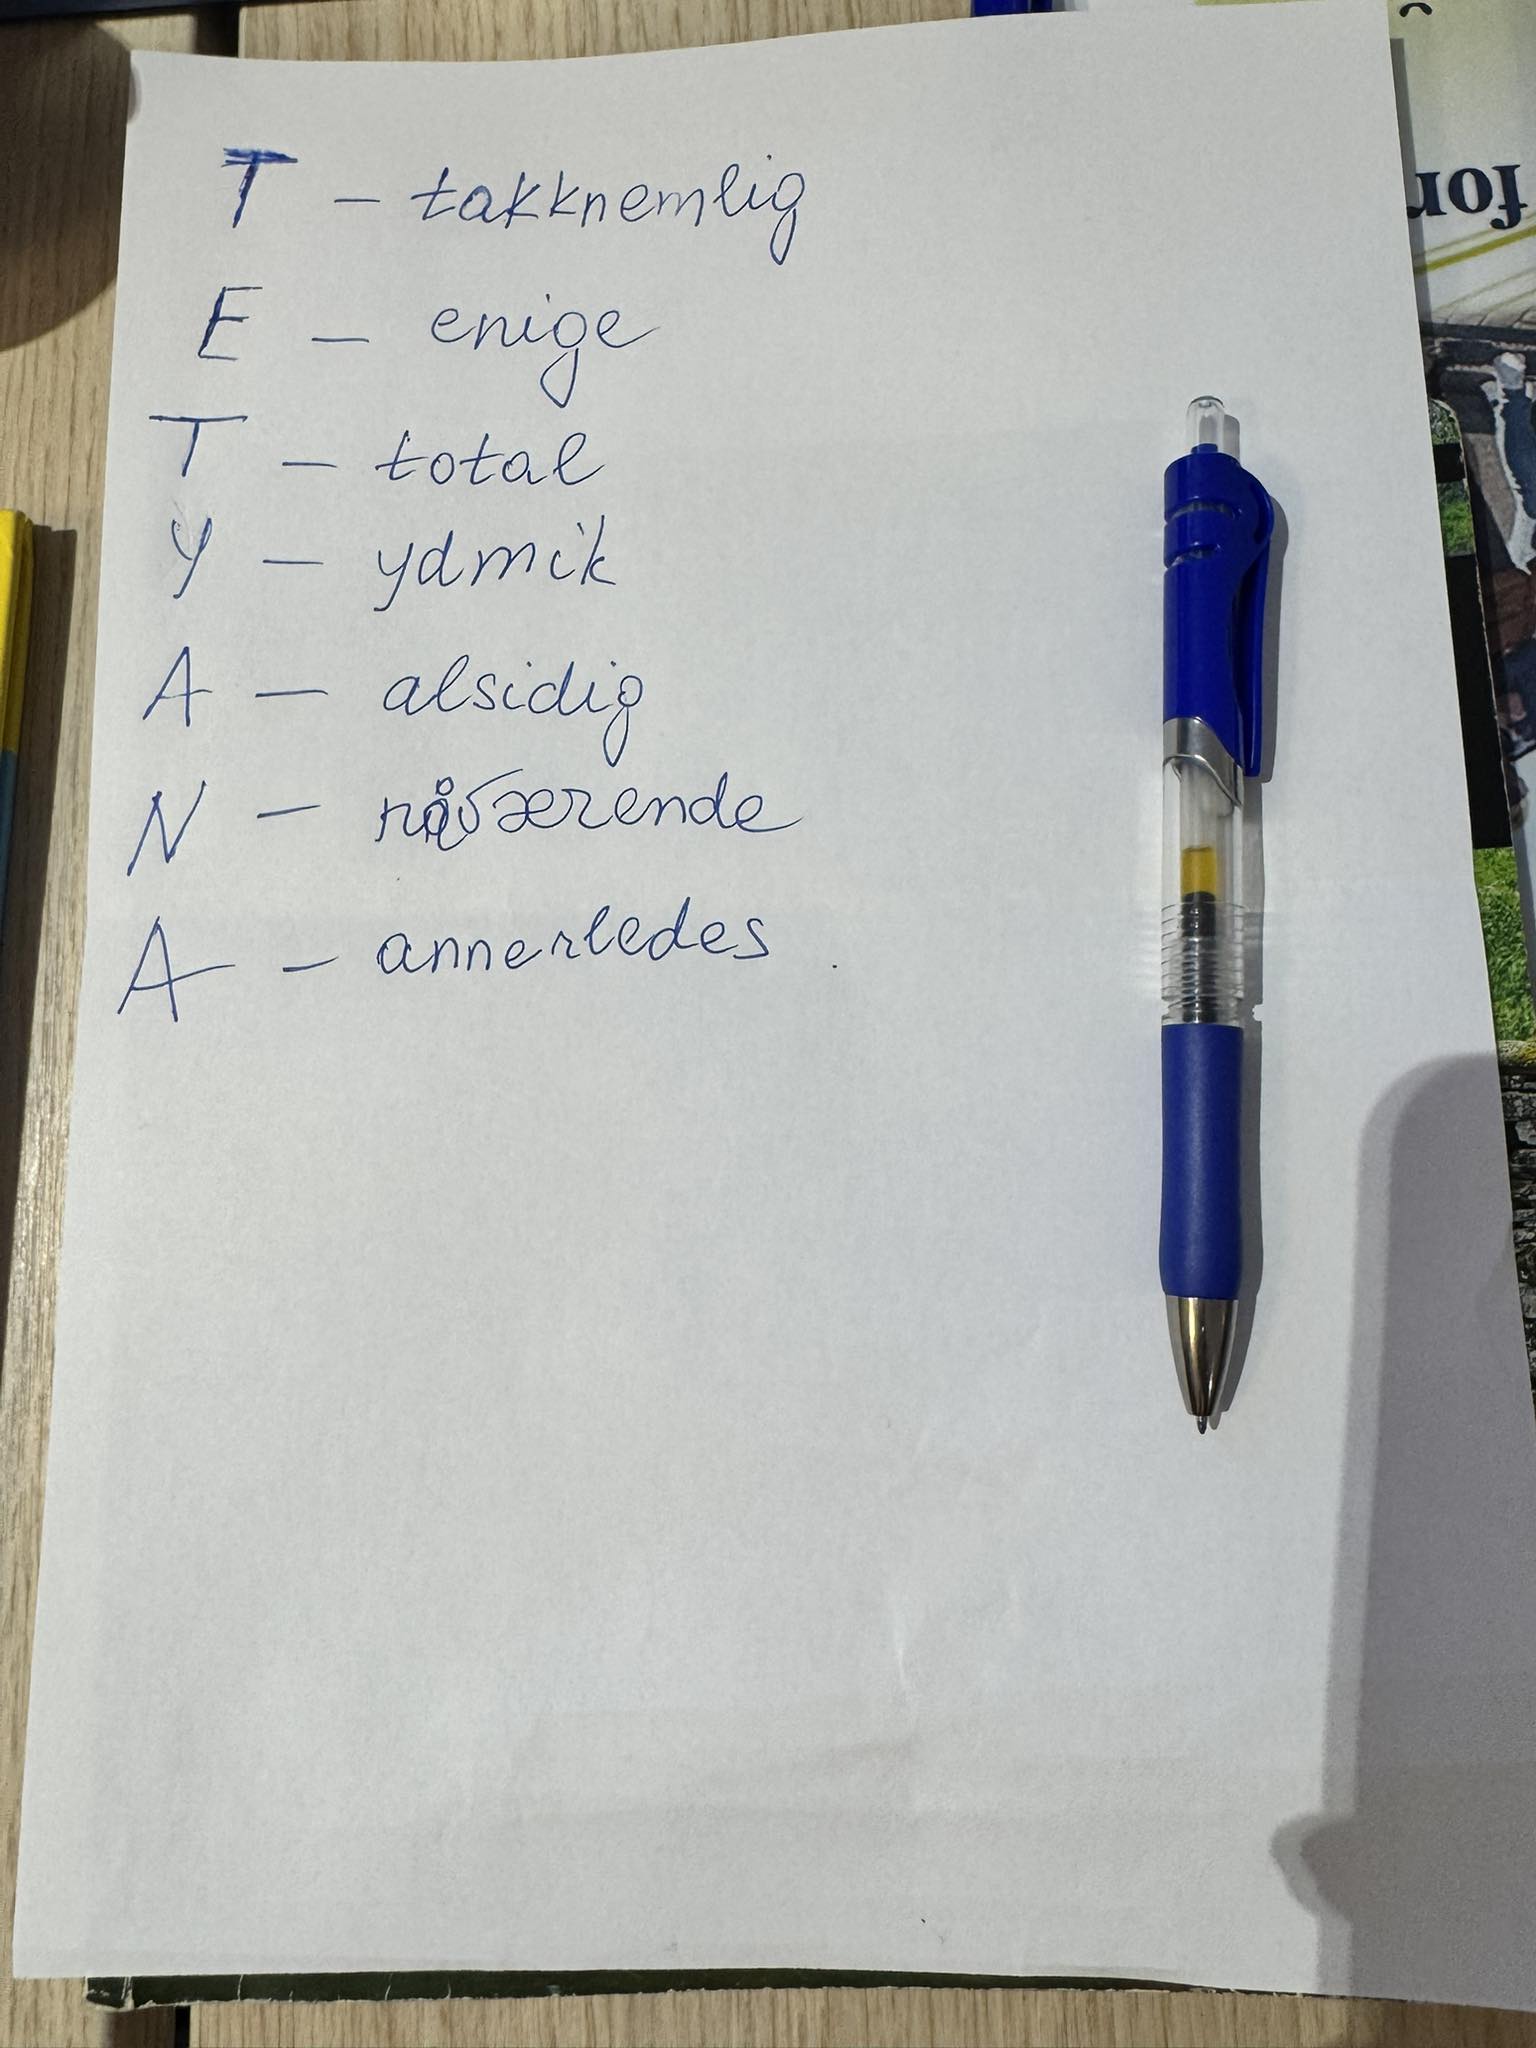 T - takknemlig
E - enige
T - total
Y - ydmik
A - alsidig
N - nåværende
A - annerledes
for